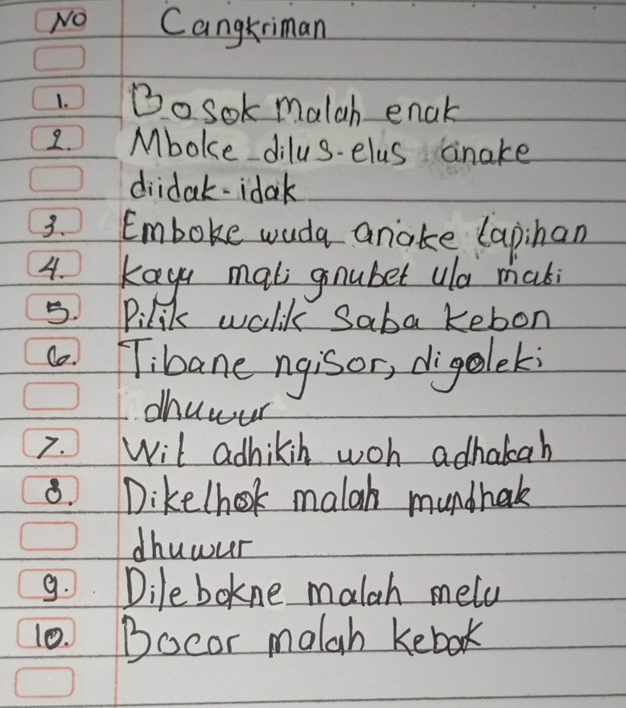 No Cangkriman
1. Bosok malah enak
2. Mboke dilus-elus anake
diidak-idak
3. Emboke wuda anake tapihan
4. kayu mati gnubet ula mati
5. Pitik walik Saba kebon
6. Tibane ngisor, digoleki
dhuwur
7. Wit adhikih woh adhakah
8. Dikethok malah mundhak
dhuwur
9. Dilebokne malah metu
10. Bocor malah kebak